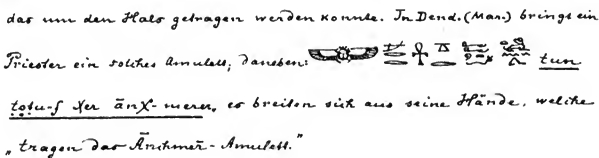 das um den Hals getragen werden konnte. In Dend. (Mar.) bringt ein
Priester ein solches Amulett; daneben: tun
totu-f χer ānχ-merer, es breiten sich aus seine Hände, welche
„tragen das Ānchmer-Amulett.“